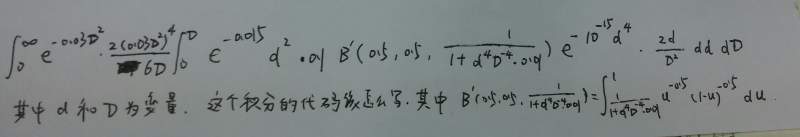 ∫₀^∞ e^{-0.03D²} · 2(0.03D²)⁴/6D ∫₀^D e^{-0.015 d²} · 0.1 B'(0.5, 0.5, 1/(1+d⁴D⁻⁴·0.1)) e^{-10⁻¹⁵d⁴} · 2d/D² dd dD
其中 d 和 D 为变量. 这个积分的代码该怎么写. 其中 B'(0.5, 0.5, 1/(1+d⁴D⁻⁴·0.1)) = ∫_{1/(1+d⁴D⁻⁴·0.1)}^1 u^{-0.5} (1-u)^{-0.5} du.